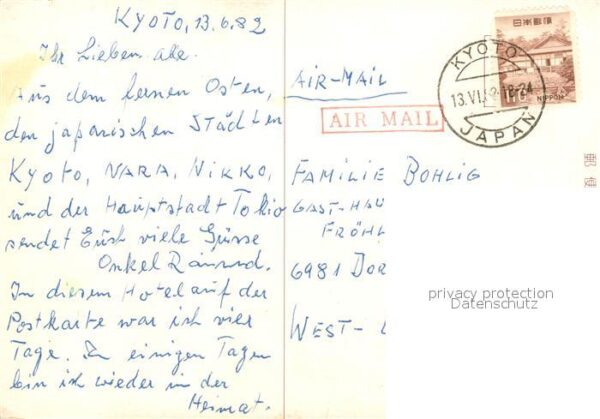 KYOTO, 13.6.82
Ihr Lieben alle.
Aus dem fernen Osten,
den japanischen Städten
KYOTO, NARA, NIKKO,
und der Hauptstadt Tokio
sendet Euch viele Grüsse
Onkel
In diesem Hotel auf der
Postkarte war ich vier
Tage. In einigen Tagen
bin ich wieder in der
Heimat.
日本郵便
NIPPON
KYOTO
13.VI.
18-24
JAPAN
AIR-MAIL
AIR MAIL
郵便
FAMILIE BOHLIG
GAST-HAU
FRÖHL
6981 DOR
WEST-
privacy protection
Datenschutz